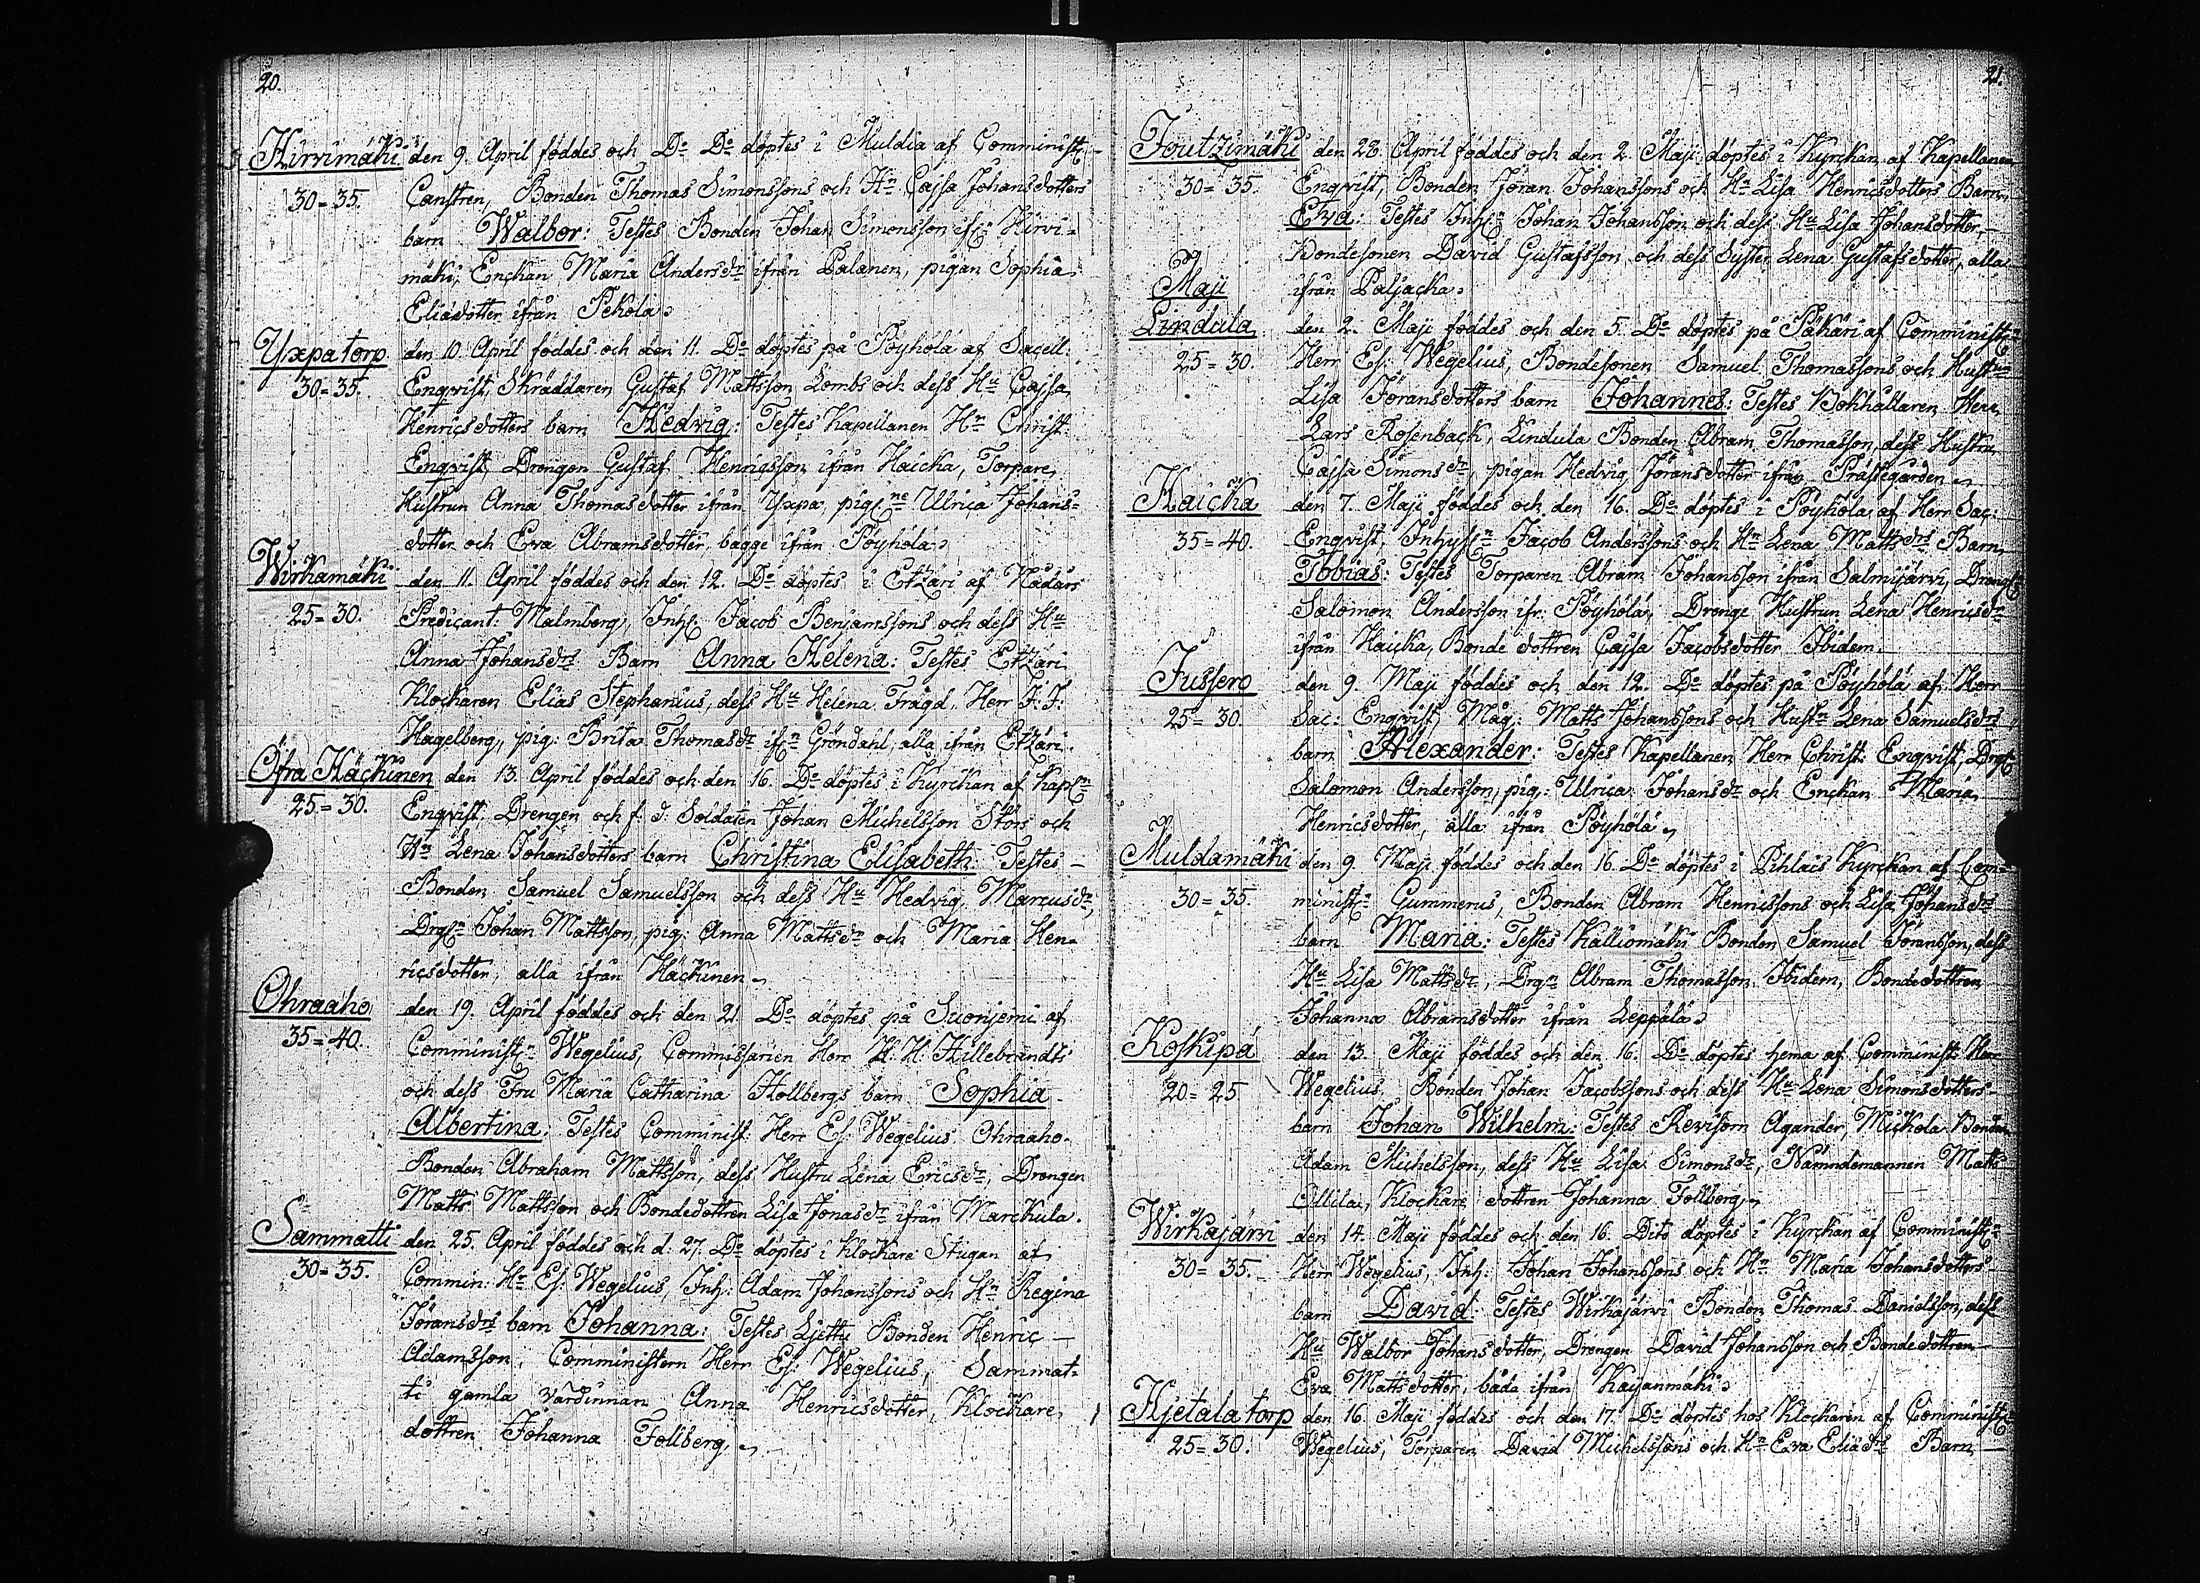 20.
Hirvimäki den 9. April föddes och Do Do döptes i Muldia af Comminist:
30=35. Canstren, Bonden Thomas Simonssons och Hn Cajsa Johansdotters
barn Walbor: Testes Bonden Johan Simonsson ifr: Hirvi=
mäki, Enckan Maria Andersdr ifrån Palanen, pigan Sophia
Eliædotter ifrån Pekola.
Yxpa torp den 10. April föddes och den 11. Do döptes på Pöyhölä af Sacell:
30=35. Enqvist, Skräddaren Gustaf Mattsson Lombs och dess Hu Cajsa
Henricsdotters barn Hedvig: Testes Kapellanen Hr Christ:
Enqvist, Drengen Gustaf Henricsson ifrån Haicka, Torpare
Hustrun Anna Thomasdotter ifrån Yxpa, pigne Ulrica Johans=
dotter och Eva Abramsdotter, bägge ifrån Pöyhölä.
Wirkamäki den 11. April föddes och den 12. Do döptes i Etzäri af Hädärs
25=30. Predicant: Malmberg, Inh: Jacob Benjamssons och dess Hu
Anna Johansdrs Barn Anna Helena: Testes Etzäri
Klockaren Elias Stephanius, dess Hu Helena Frägd, Herr F: F:
Hagelberg, pig: Brita Thomasdr ifrn Gröndahl, alla ifrån Etzäri.
Öfra Häckinen den 13. April föddes och den 16. Do döptes i Kyrckan af Kapln
25=30. Enqvist, Drengen och f. d. Soldaten Johan Michelsson Stors och
Hn Lena Johansdotters barn Christina Elisabeth: Testes
Bonden Samuel Samuelsson och dess Hu Hedvig Marcusdr,
Drgn Johan Mattsson, pig: Anna Mattsdr och Maria Hen=
ricsdotter, alla ifrån Häckinen.
Ohraaho den 19. April föddes och den 21 Do döptes på Suonjemi af
35=40. Comminist: Wegelius, Commissarien Herr H. H. Hillebrandts
och dess Fru Maria Catharina Hollbergs barn Sophia
Albertina: Testes Comminist: Herr Es: Wegelius. Ohraaho
Bonden Abraham Mattsson, dess Hustru Lena Ericsdr, Drengen
Matts Mattsson och Bondedottren Lisa Jonasdr ifrån Marckula.
Sammatti den 25. April föddes och d: 27. Do döptes i Klockare Stugan af
30=35. Commin: Hr Es: Wegelius, Inh: Adam Johanssons och Hn Regina
Jöransdrs barn Johanna: Testes Ljettu Bonden Henric
Adamsson, Comministern Herr Es: Wegelius, Sammat=
ti gamla värdinnan Anna Henricsdotter, Klockare
dottren Johanna Follberg.
21.
Joutzimäki den 28. April föddes och den 2. Maji döptes i Kyrckan af Kapellanen
30=35. Enqvist, Bonden Jöran Johanssons och Hn Lisa Henricsdotters Barn
Eva: Testes Inh: Johan Johansson och dess Hu Lisa Johansdotter,
Bondesonen David Gustafsson och dess Syster Lena Gustafsdotter, alla
ifrån Paljacka.
Maji
Lindula den 2. Maji föddes och den 5. Do döptes på Päkäri af Comminist:
25=30. Herr Es: Wegelius, Bondesonen Samuel Thomassons och Hustrun
Lisa Jöransdotters barn Johannes: Testes Bokhållaren Herr
Lars Rosenback, Lindula Bonden Abram Thomasson, dess Hustru
Cajsa Simonsdr, pigan Hedvig Jöransdotter ifrån Prästegården.
Haicka den 7. Maji föddes och den 16. Do döptes i Pöyhölä af Herr Sac:
35=40. Enqvist, Inhysn Jacob Anderssons och Hn Lena Mattsdrs Barn
Tobias: Testes Torparen Abram Johansson ifrån Salmijärvi, Drengn
Salomon Andersson ifr. Pöyhölä, Drenge Hustrun Lena Henricsdr
ifrån Haicka, Bonde dottren Cajsa Jacobsdotter Ibidem.
Jussero den 9. Maji föddes och den 12. Do döptes på Pöyhölä af Herr
25=30. Sac: Enqvist, Måg: Matts Johanssons och Hustn Lena Samuelsdrs
barn Alexander: Testes Kapellanen Herr Christ: Enqvist, Drgn
Salomon Andersson, pig: Ulrica Johansdr och Enckan Maria
Henricsdotter, alla ifrån Pöyhölä.
Muldamäki den 9. Maji föddes och den 16. Do döptes i Pihlais Kyrckan af Com=
30=35. minist: Gummerus, Bonden Abram Henricssons och Lisa Johansdrs
barn Maria: Testes Kalliomäki Bonden Samuel Jöransson, dess
Hu Lisa Mattsdr, Drgn Abram Thomasson Ibidem, Bondedottren
Johanna Abramsdotter ifrån Leppälä.
Koskipä den 13. Maji föddes och den 16. Do döptes hema af Comminist: Herr
20=25 Wegelius, Bonden Johan Jacobssons och dess Hu Lena Simonsdotters
barn Johan Wilhelm: Testes Revisorn Agander, Mickola Bonden
Adam Michelsson, dess Hu Lisa Simonsdr, Nämndemannen Matts
Ollila, Klockare dottren Johanna Follberg.
Wirkajärvi den 14. Maji föddes och den 16. Dito döptes i Kyrckan af Comminist:
30=35. Herr Wegelius, Inh: Johan Johanssons och Hn Maria Johansdotters
barn David: Testes Wirkajärvi Bonden Thomas Danielsson, dess
Hu Walbor Johansdotter, Drengen David Johansson och Bondedottren
Eva Mattsdotter, båda ifrån Kajanmäki.
Hjetala torp den 16. Maji föddes och den 17. Do döptes hos Klockaren af Comminist:
25=30. Wegelius, Torparen David Michelssons och Hn Eva Eliædrs Barn